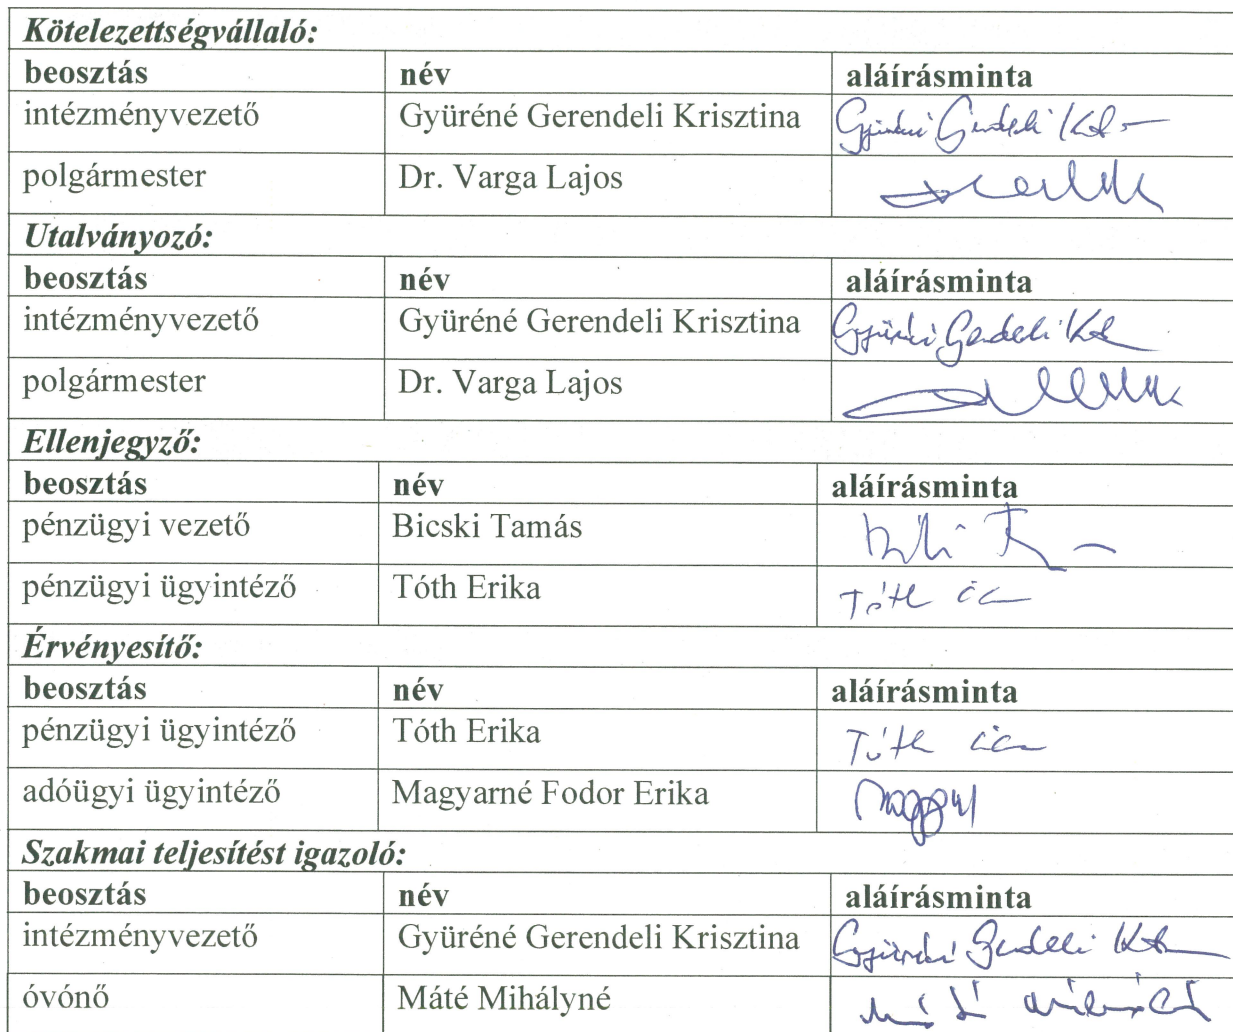 Kötelezettségvállaló:
beosztás név aláírásminta
intézményvezető Gyüréné Gerendeli Krisztina
polgármester Dr. Varga Lajos
Utalványozó:
beosztás név aláírásminta
intézményvezető Gyüréné Gerendeli Krisztina
polgármester Dr. Varga Lajos
Ellenjegyző:
beosztás név aláírásminta
pénzügyi vezető Bicski Tamás
pénzügyi ügyintéző Tóth Erika Tóth
Érvényesítő:
beosztás név aláírásminta
pénzügyi ügyintéző Tóth Erika Tóth
adóügyi ügyintéző Magyarné Fodor Erika
Szakmai teljesítést igazoló:
beosztás név aláírásminta
intézményvezető Gyüréné Gerendeli Krisztina
óvónő Máté Mihályné